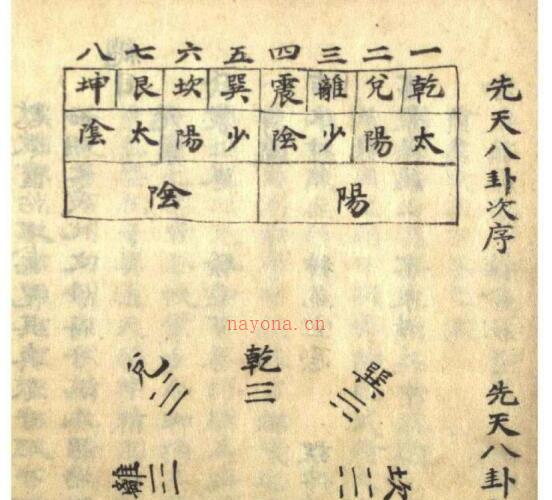 先天八卦次序
一 二 三 四 五 六 七 八
乾 兌 離 震 巽 坎 艮 坤
太陽 少陰 少陽 太陰
陽 陰
先天八卦
兌 乾 巽
離 坎
nayona.cn